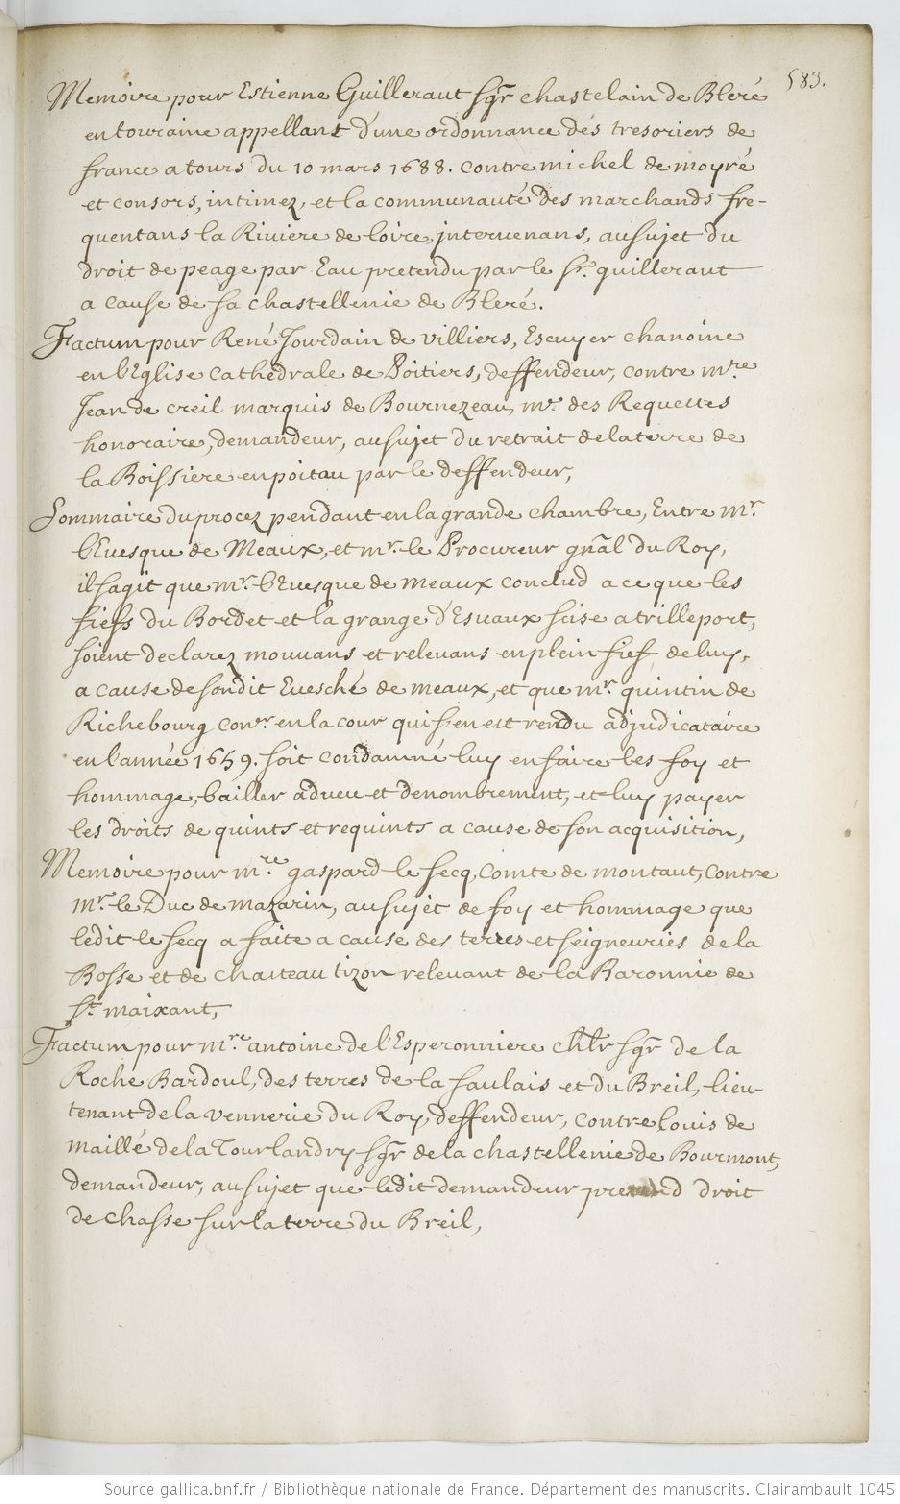 583.
Memoire pour Estienne Guilleraut sgr chastelain de Bleré
en touraine appellant d'une ordonnance des tresoriers de
france a tours du 10 mars 1688. contre michel de moyré
et consors, intimez, et la communauté des marchands fre-
quentans la Riviere de loire, intervenans, au sujet du
droit de peage par Eau pretendu par le Sr. guilleraut
a cause de sa chastellenie de Bleré.
Factum pour René Jourdain de villiers, Escuyer chanoine
en l'Eglise cathedrale de Poitiers, deffendeur, contre mre
Jean de creil marquis de Bournezeau, mr. des Requettes
honoraire, demandeur, au sujet du retrait de la terre de
la Boissiere en poitau par le deffendeur,
Sommaire du procez pendant en la grande chambre, Entre mr
l'Euesque de Meaux, et mr. le Procureur gnâl du Roy,
il s'agit que mr. l'Euesque de meaux conclud a ce que les
fiefs du Bordet et la grange d'Esuaux scise a trilleport,
soient declarez mouvans et relevans en plein fief, de luy,
a cause de son dit Euesché de meaux, et que mr. quintin de
Richebourg conser en la cour qui s'en est rendu adjudicataire
en l'année 1659. soit condamné luy en faire les foy et
hommage, bailler adveu et denombrement, et luy payer
les droits de quints et requints a cause de son acquisition,
Memoire pour mre gaspard le secq, Comte de montaut, contre
mr. le Duc de mazarin, au sujet de foy et hommage que
ledit le secq a faite a cause des terres et seigneuries de la
Bosse et de chasteau tizon relevant de la Baronnie de
St. maixant,
Factum pour mre antoine de l'Esperonniere chlr sgr de la
Roche Bardoul, des terres de la saulais et du Breil, lieu-
tenant de la vennerie du Roy, deffendeur, contre Louis de
maillé de la Tourlandry sgr de la chastellenie de Bourmont,
demandeur, au sujet que ledit demandeur pretend droit
de chasse sur la terre du Breil,
Source gallica.bnf.fr / Bibliothèque nationale de France. Département des manuscrits. Clairambault 1045